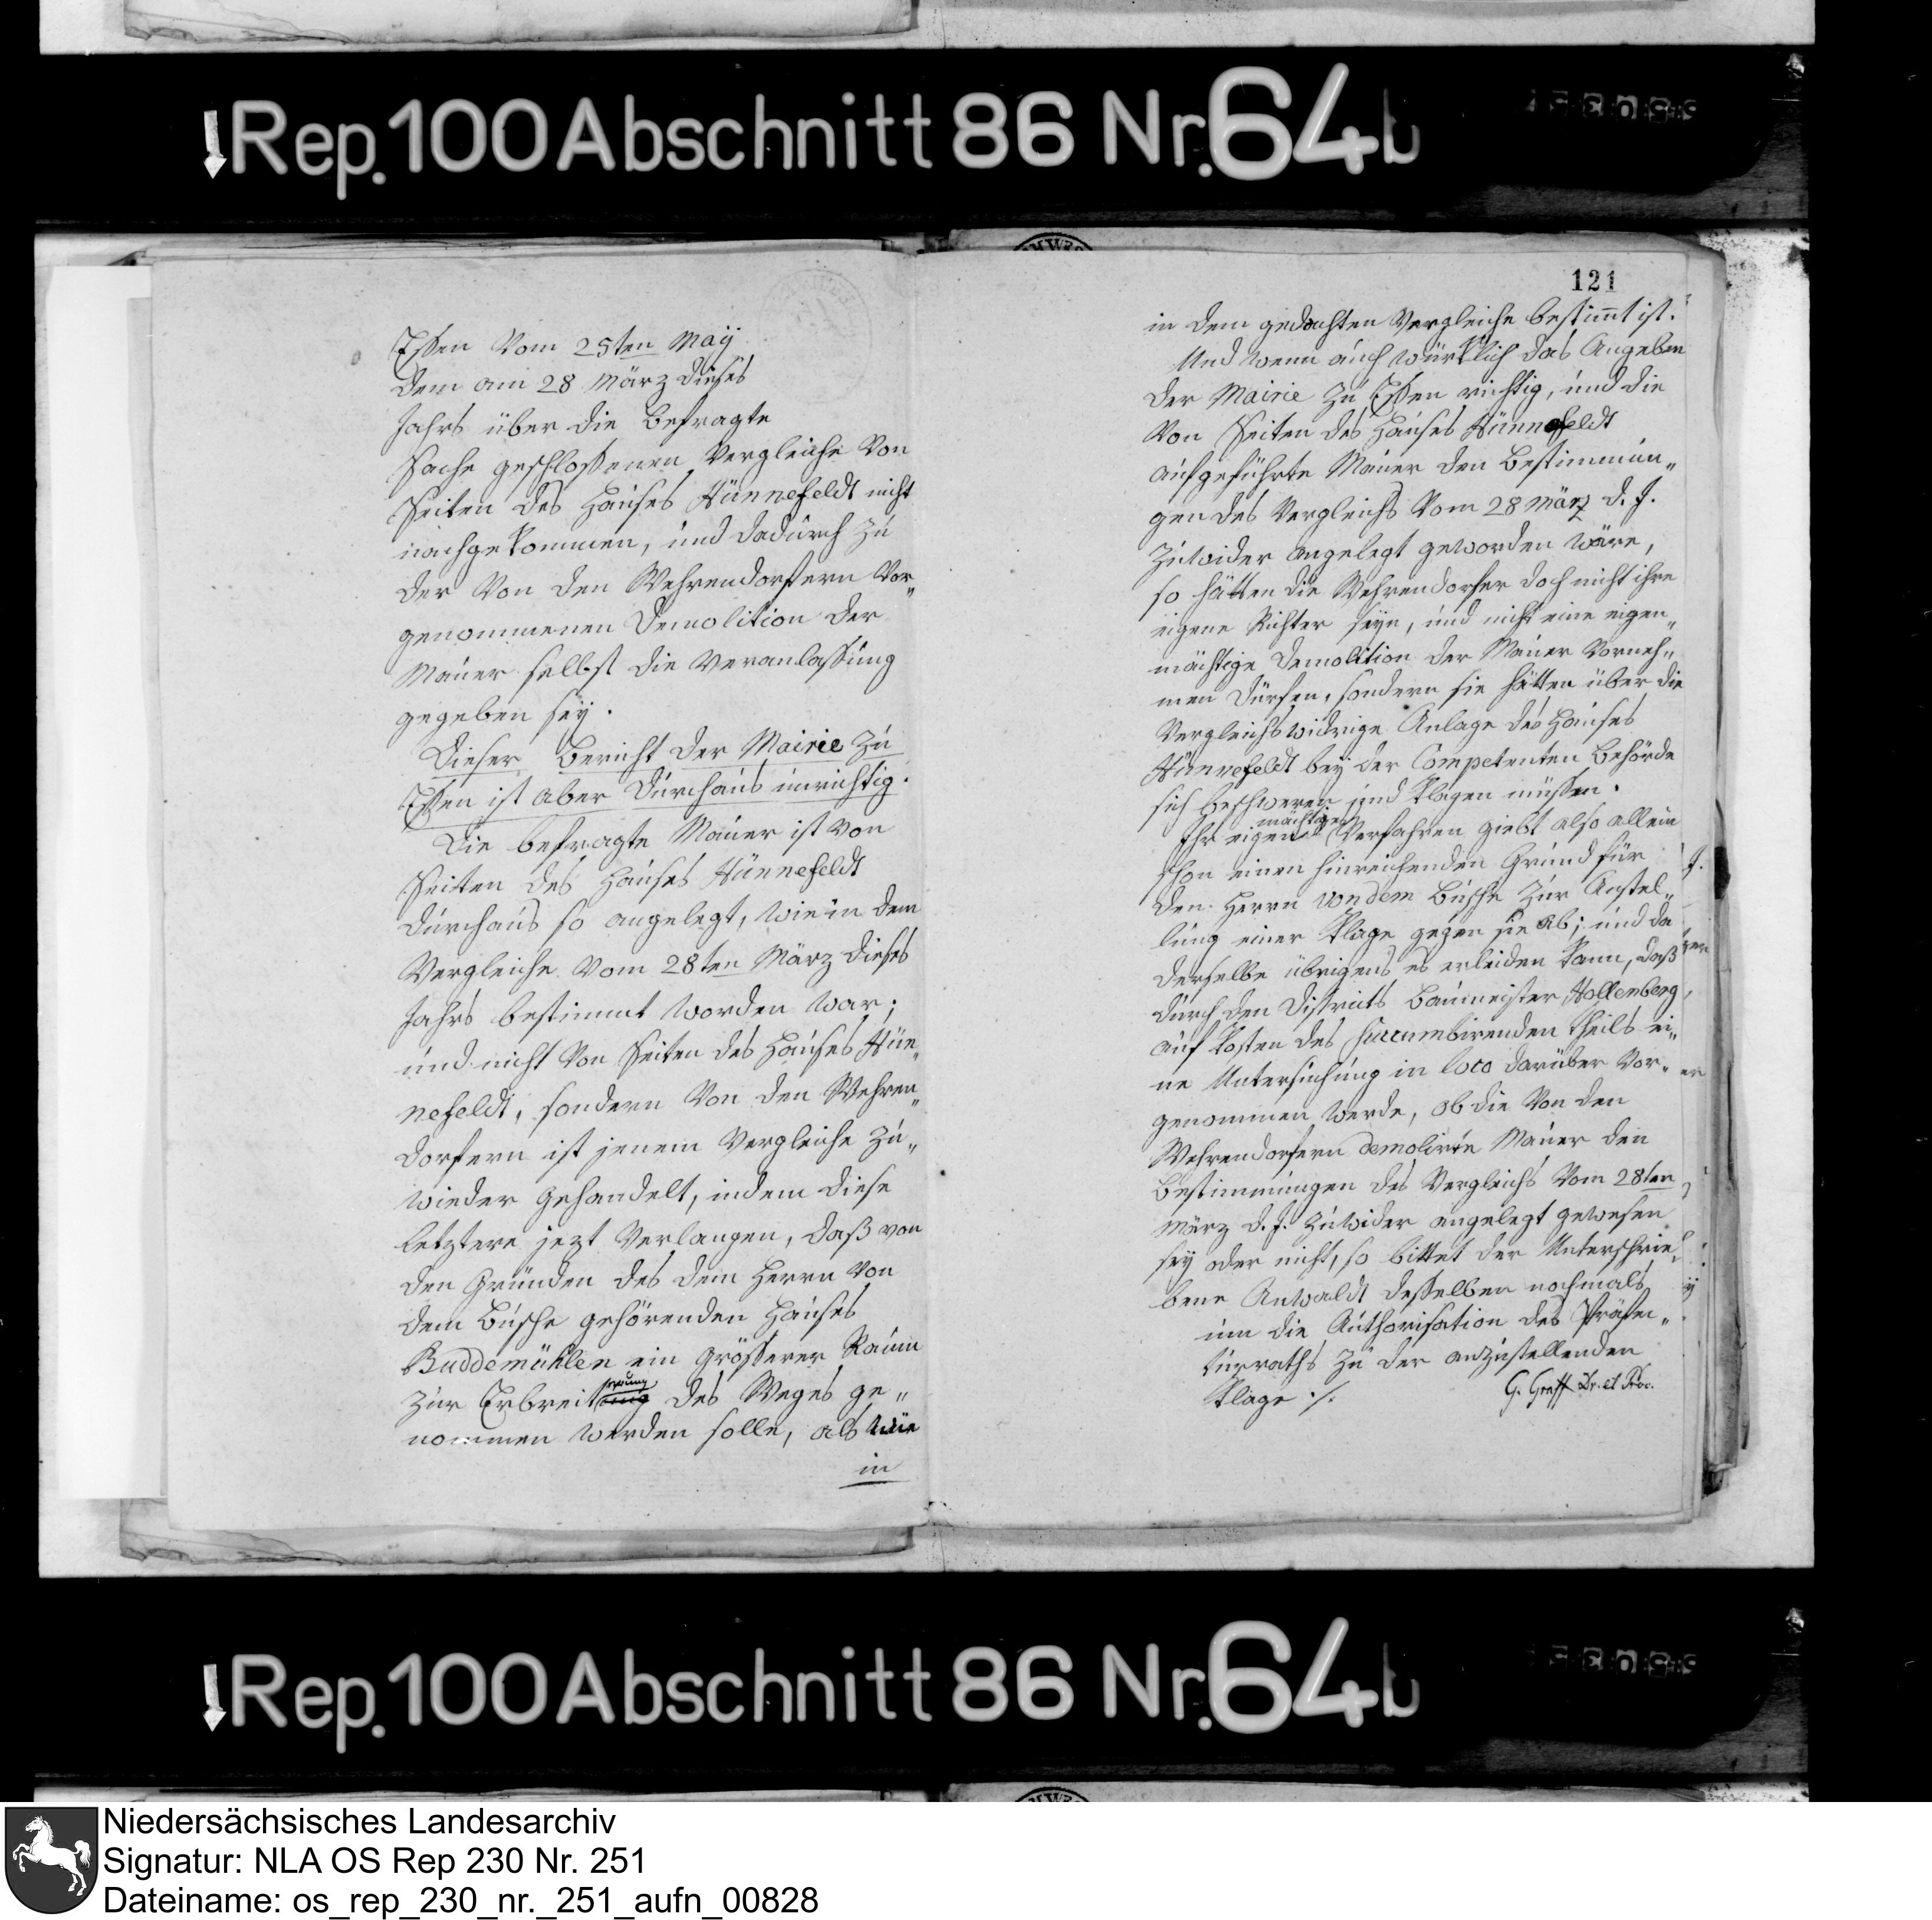 Rep. 100 Abschnitt 86 Nr. 64b
Essen vom 25ten May
dem am 28 März dieses
Jahrs über die befragte
Sache geschlossenen Vergleiche von
Seiten des Hauses Hünnefeldt nicht
nachgekommen, und dadurch zu
der von den Wehrendorfern vor„
genommenen Demolition der
Mauer selbst die Veranlassung
gegeben sey.
Dieser Bericht der Mairie zu
Essen ist aber durchaus unrichtig.
Die befragte Mauer ist von
Seiten des Hauses Hünnefeldt
durchaus so angelegt, wie in dem
Vergleiche vom 28ten März dieses
Jahrs bestimmt worden war;
und nicht von Seiten des Hauses Hün„
nefeldt, sondern von den Wehren„
dorfern ist jenem Vergleiche zu„
wieder gehandelt, indem diese
letztere jezt verlangen, daß von
den Gründen des dem Herrn von
dem Busche gehörenden Hauses
Buddemühlen ein grösserer Raum
zur Erbreiterung des Weges ge„
nommen werden solle, als wie
in
121
in dem gedachten Vergleiche bestimt ist.
Und wenn auch würklich das Angeben
der Mairie zu Essen richtig, und die
von Seiten des Hauses Hünnefeldt
aufgeführte Mauer den Bestimmun„
gen des Vergleichs vom 28 März d. J.
zuwider angelegt geworden wäre,
so hätten die Wehrendorfer doch nicht ihre
eigene Richter seyn, und nicht eine eigen„
mächtige Demolition der Mauer vorneh„
men dürfen, sondern sie hätten über die
Vergleichswidrige Anlage des Hauses
Hünnefeldt bey der Competenten Behörde
sich beschweren und klagen müssen.
Ihr eigenmächtiges Verfahren giebt also allein
schon einen hinreichenden Grund für
den Herrn von dem Busche zur Anstel„
lung einer Klage gegen sie ab; und da
derselbe übrigens es erleiden kann, daß
durch den Districts Baumeister Hollenberg
auf Kosten des succumbirenden Theils ei„
ne Untersuchung in loco darüber vor„
genommen werde, ob die von den
Wehrendorfern demolirte Mauer den
Bestimmungen des Vergleichs vom 28ten
März d. J. zuwider angelegt gewesen
sey oder nicht, so bittet der Unterschrie„
bene Anwaldt desselben nochmals
um die Authorisation des Präfec„
turraths zu der anzustellenden
Klage ./.
G. Graff Dr. et Proc.
Rep. 100 Abschnitt 86 Nr. 64b
Niedersächsisches Landesarchiv
Signatur: NLA OS Rep 230 Nr. 251
Dateiname: os_rep_230_nr._251_aufn_00828